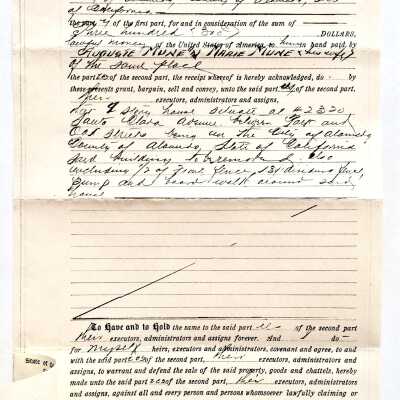 of California
the part y of the first part, for and in consideration of the sum of
Three hundred (300) DOLLARS,
lawful money of the United States of America, to him in hand paid by
AUGUSTE MUNE & MARIE MUNE his wife
of the same place
the parties of the second part, the receipt whereof is hereby acknowledged, do by
these presents grant, bargain, sell and convey, unto the said part of the second part,
their executors, administrators and assigns,
story house situate at #2320
Santa Clara avenue between Park and
Oak streets being in the City of Alameda,
County of Alameda, State of California
Said building to be removed. Also
including 1/2 of line fence, dividing fence,
pump and board walk around said
house
To Have and to Hold the same to the said part of the second part
their executors, administrators and assigns forever. And I do
for myself heirs, executors and administrators, covenant and agree, to and
with the said parties of the second part, their executors, administrators and
assigns, to warrant and defend the sale of the said property, goods and chattels, hereby
made unto the said parties of the second part, their executors, administrators and
assigns, against all and every person and persons whomsoever lawfully claiming or
State of